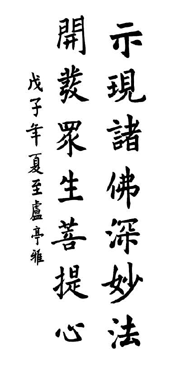 示現諸佛深妙法
開發眾生菩提心
戊子年夏至盧亭雅